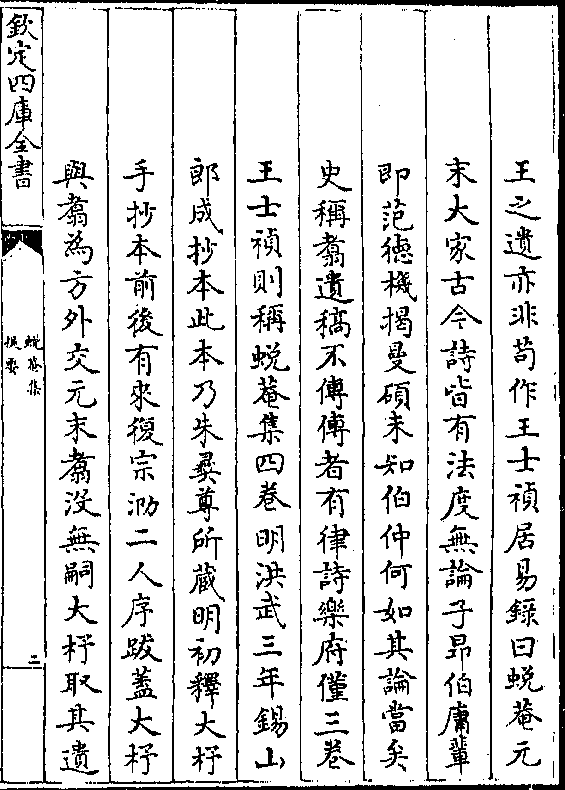 王之遺亦非苟作王士禎居易錄曰蛻菴元
末大家古今詩皆有法度無論子昂伯庸輩
即范德機揭曼碩未知伯仲何如其論當矣
史稱翥遺稿不傳傳者有律詩樂府僅三卷
王士禎則稱蛻菴集四卷明洪武三年錫山
郎成抄本此本乃朱彞尊所藏明初釋大杼
手抄本前後有來復宗泐二人序跋蓋大杼
與翥為方外交元末翥没無嗣大杼取其遺
欽定四庫全書
蛻菴集
提要
二